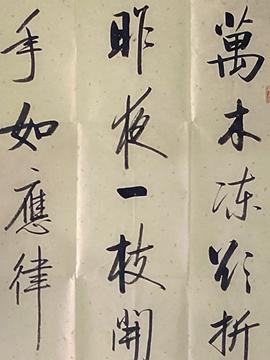 萬木冻欲折
昨夜一枝開
年如應律